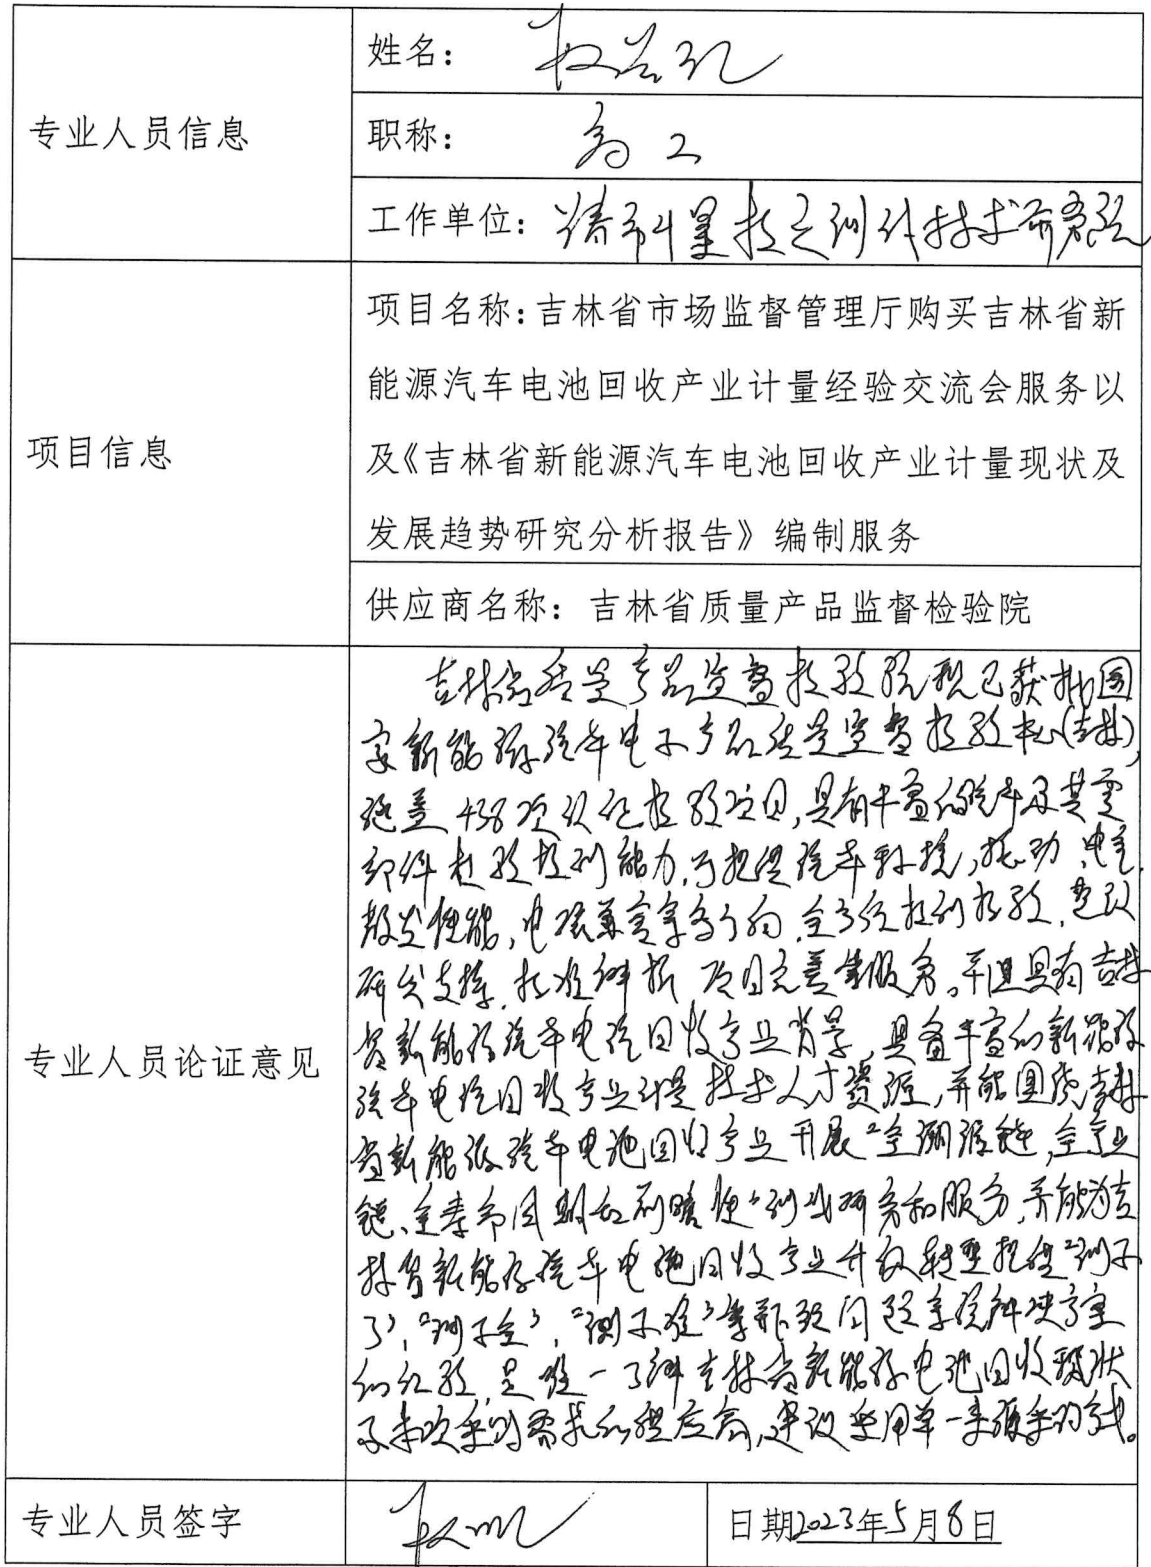 专业人员信息
姓名：
职称：高工
工作单位：
项目信息
项目名称：吉林省市场监督管理厅购买吉林省新
能源汽车电池回收产业计量经验交流会服务以
及《吉林省新能源汽车电池回收产业计量现状及
发展趋势研究分析报告》编制服务
供应商名称：吉林省质量产品监督检验院
专业人员论证意见
吉林省质量产品监督检验院现已获批国
家新能源汽车电子产品质量监督检验中心(吉林)，
涵盖438项认证检验项目，具有丰富的汽车及其零
部件检验检测能力，可提供汽车环境，振动，
散发性能，电磁兼容等多方向，全方位检测检验，建设
研发支撑，标准解析，项目完善等服务。并且具有吉林
省新能源汽车电池回收产业背景，具备丰富的新能源
汽车电池回收产业计量技术人才资源，并能围绕吉林
省新能源汽车电池回收产业开展“全溯源链，全产业
链、全寿命周期和前瞻性”测试研究和服务，并能为吉
林省新能源汽车电池回收产业升级转型提供“测不
了”，“测不全”，“测不准”等瓶颈问题系统解决方案
的经验，是唯一了解吉林省新能源电池回收现状
及本次采购需求的供应商，建议采用单一来源采购方式。
专业人员签字
日期2023年5月8日